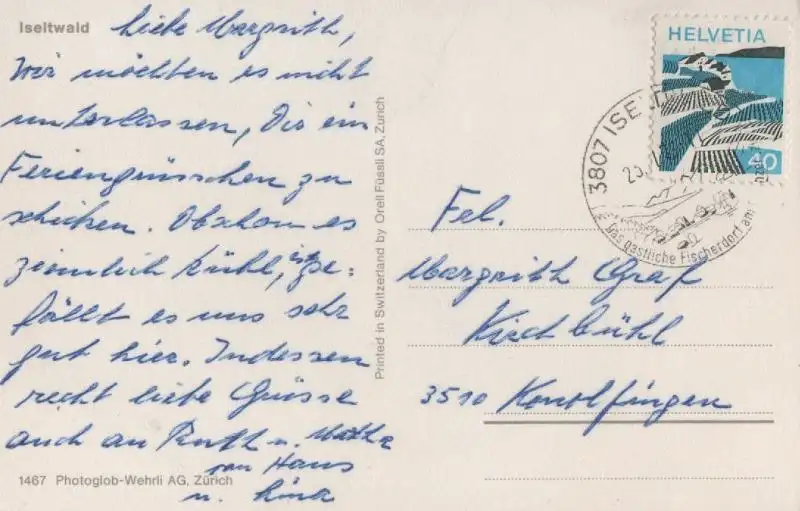 Iseltwald
Liebe Margrith,
Wir möchten es nicht
unterlassen, Dir ein
Feriengrüsschen zu
schicken. Obschon es
ziemlich kühl, ist ge-
fällt es uns sehr
gut hier. Indessen
recht liebe Grüsse
auch an Ruth u. Martha
von Hans
u. Lina
1467 Photoglob-Wehrli AG, Zürich
Printed in Switzerland by Orell Füssli SA, Zurich
HELVETIA
40
3807 ISELT
Das gastliche Fischerdorf am
Fel.
Margrith Graf
Kirchbühl
3510 Konolfingen